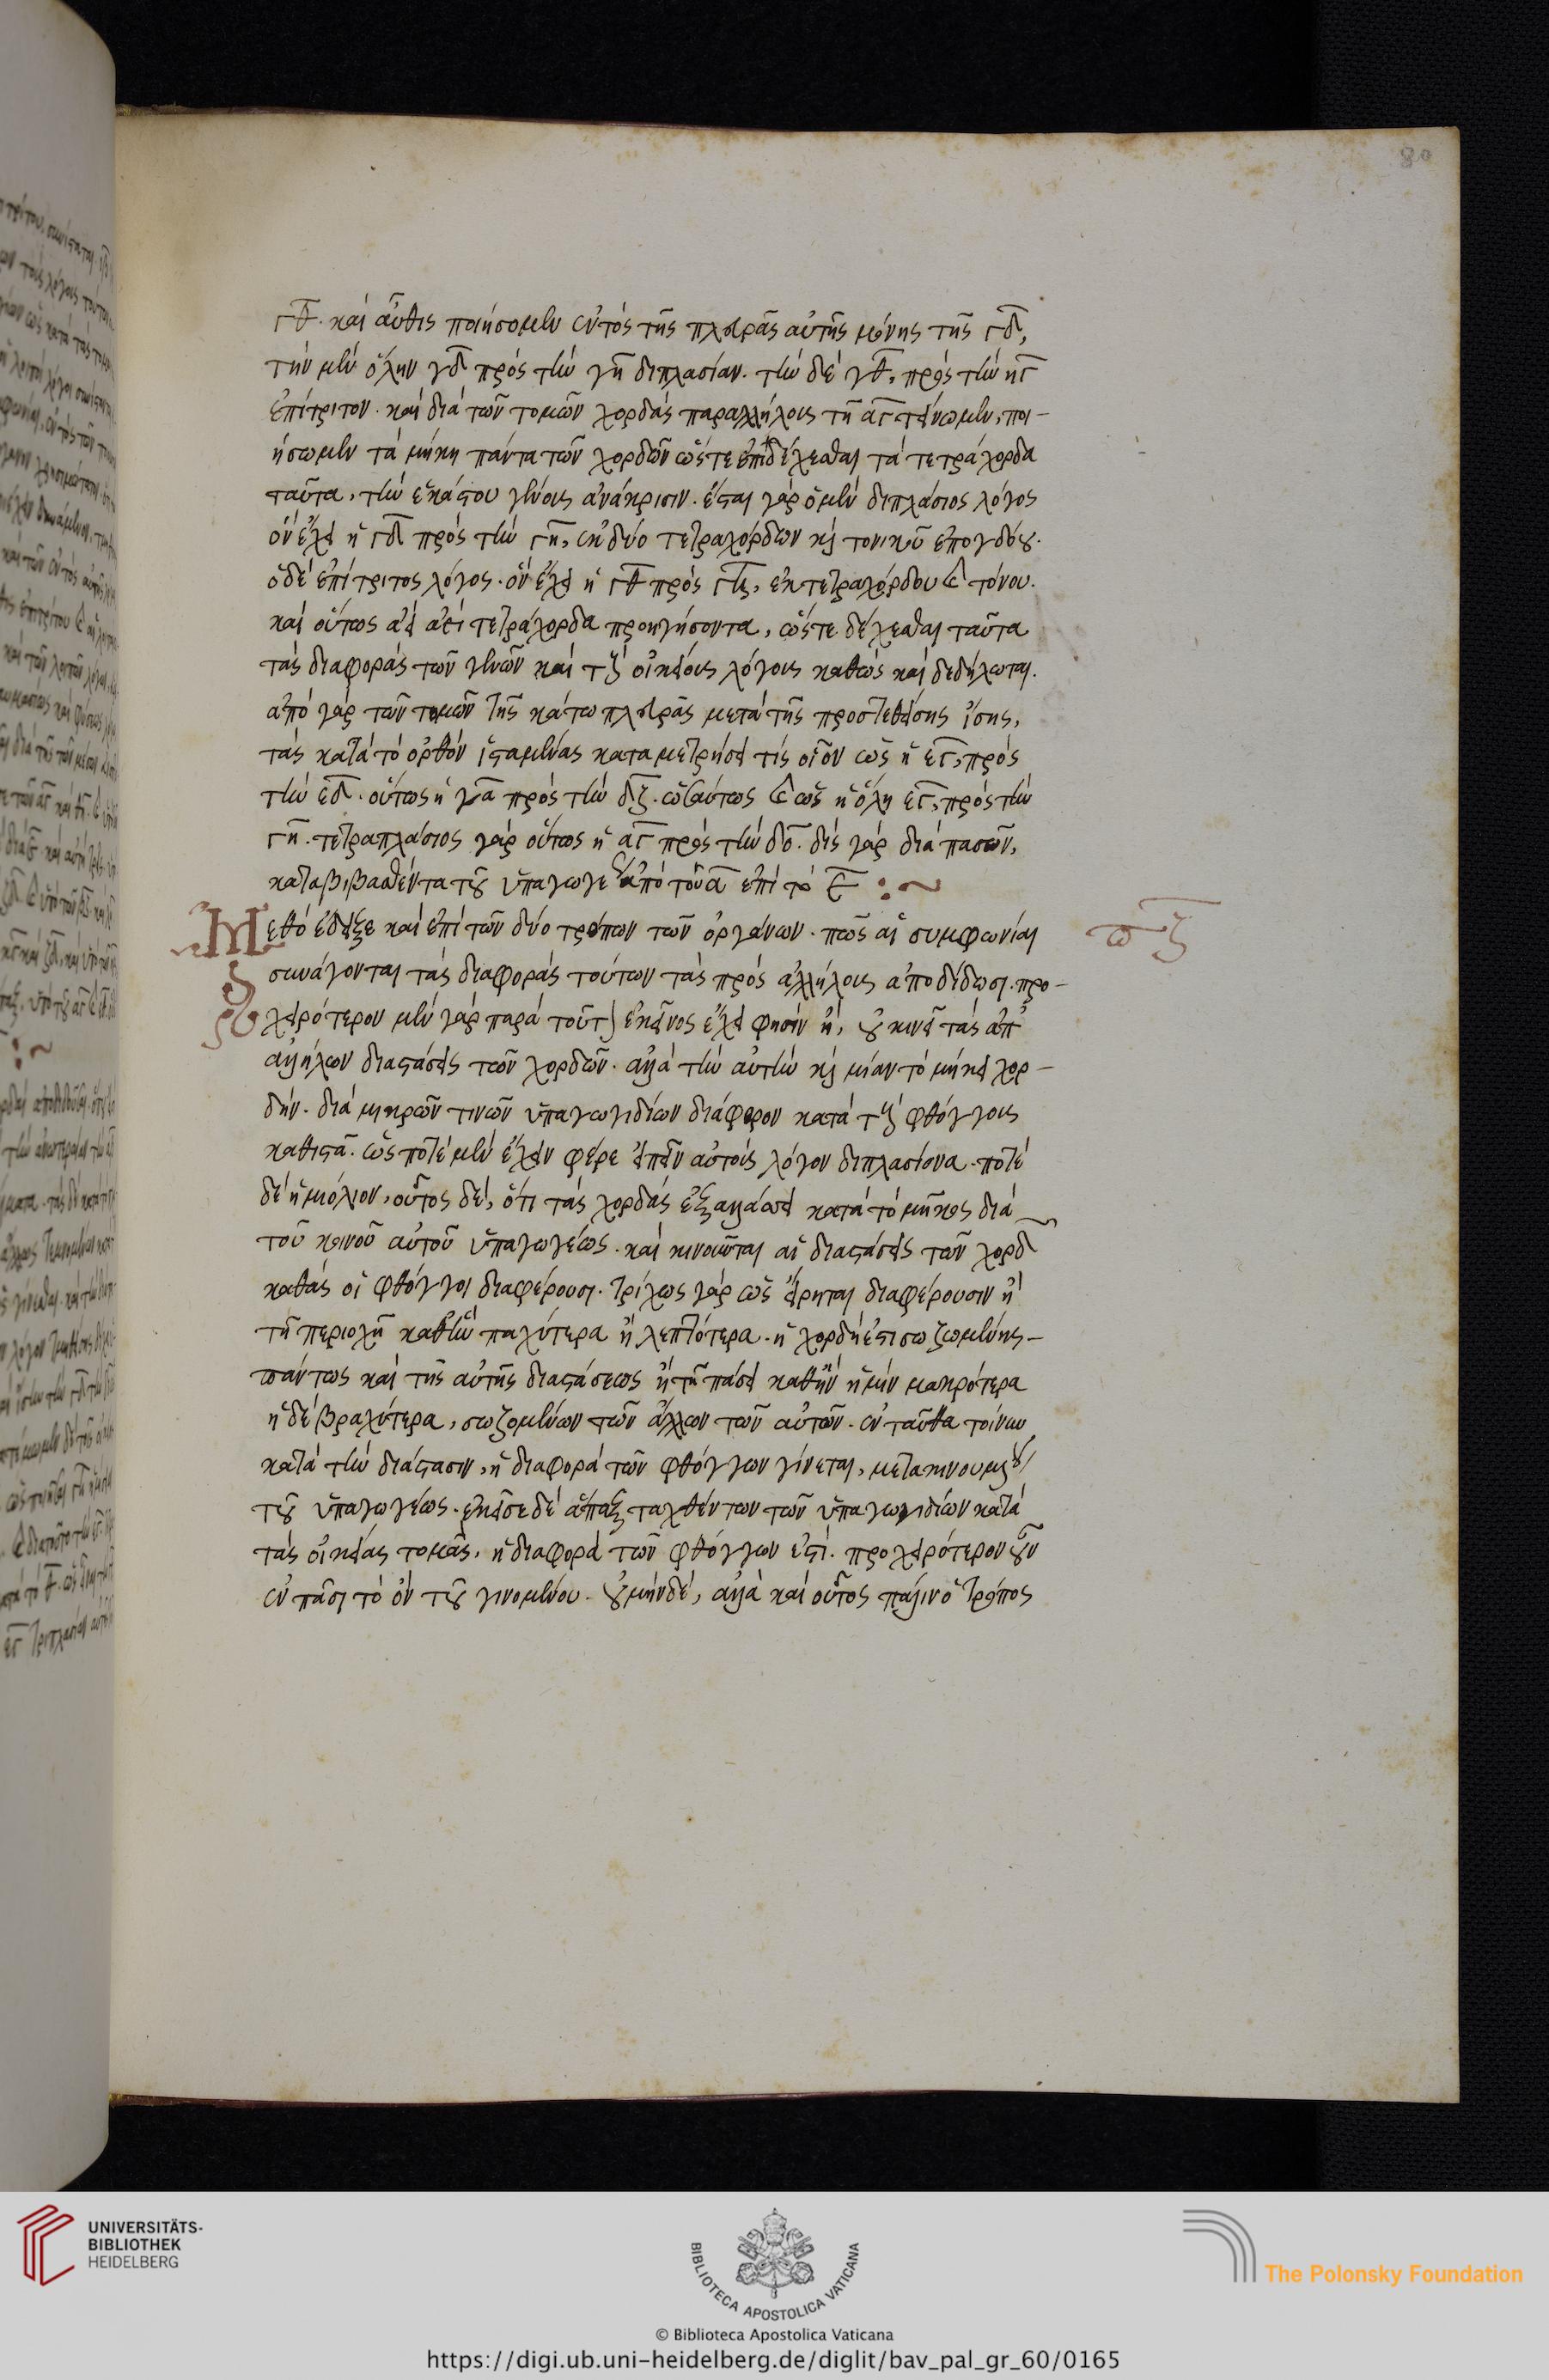 80
γθ. καὶ αὖθις ποιήσομεν ἐντὸς τῆς πλευρᾶς αὐτῆς μόνης τῆς γδ,
τὴν μὲν ὅλην γδ πρὸς τὴν γη διπλασίαν. τὴν δὲ γθ, πρὸς τὴν
ἐπίτριτον. καὶ διὰ τῶν τομῶν χορδὰς παραλλήλους τῇ αγ τείνωμεν, ποι-
ήσωμεν τὰ μήκη πάντα τῶν χορδῶν ὥστε ἐπιδέχεσθαι τὰ τετράχορδα
ταῦτα, τὴν ἑκάστου γένους ἀνάκρισιν. ἔσται γὰρ ὁ μὲν διπλάσιος λόγος
ὃν ἔχει ἡ γδ πρὸς τὴν γη, ἐκ δύο τετραχόρδων καὶ τονικοῦ ἐπογδόου.
ὁ δὲ ἐπίτριτος λόγος. ὃν ἔχει ἡ γθ πρὸς, ἐκ τετραχόρδου καὶ τόνου.
καὶ οὕτως ἀεὶ τετράχορδα προηγήσονται, ὥστε δέχεσθαι ταῦτα
τὰς διαφορὰς τῶν γενῶν καὶ τοὺς οἰκείους λόγους καθὼς καὶ δεδήλωται.
ἀπὸ γὰρ τῶν τομῶν τῆς κάτω πλευρᾶς μετὰ τῆς προστεθείσης ἴσης,
τὰς κατὰ τὸ ὀρθὸν ἱσταμένας καταμετρήσει τις οἷον ὡς ἡ εγ, πρὸς
τὴν εδ. οὕτως ἡ γα πρὸς τὴν δζ. ὡσαύτως καὶ ὡς ἡ ὅλη εγ, πρὸς τὴν
γη. τετραπλάσιος γὰρ οὕτως ἡ αγ πρὸς τὴν. δὶς γὰρ διὰ πασῶν,
καταβιβασθέντα τοῦ ὑπαγωγέως ἀπὸ τοῦ α ἐπὶ τὸ :~
Μεθὸ ἔδειξε καὶ ἐπὶ τῶν δύο τρόπων τῶν ὀργάνων. πῶς αἱ συμφωνίαι
συνάγονται τὰς διαφορὰς τούτων τὰς πρὸς ἀλλήλους ἀποδίδωσι. προ-
χειρότερον μὲν γὰρ παρὰ τοῦτο ἐκεῖνος ἔχει φησὶν ἢ, οὐ κινεῖ τὰς ἀπ'
ἀλλήλων διαστάσεις τῶν χορδῶν. ἀλλὰ τὴν αὐτὴν καὶ μίαν τὸ μήκει χορ-
δὴν. διὰ μικρῶν τινῶν ὑπαγωγιδίων διάφορον κατὰ τοὺς φθόγγους
καθιστᾶ. ὡς ποτὲ μὲν ἔχειν φέρε εἰπεῖν αὐτοὺς λόγον διπλασίονα. ποτὲ
δὲ ἡμιόλιον, οὗτος δὲ, ὅτι τὰς χορδὰς ἐξαλλάσσει κατὰ τὸ μῆκος διὰ
τοῦ κοινοῦ αὐτοῦ ὑπαγωγέως. καὶ κινοῦνται αἱ διαστάσεις τῶν χορδῶν
καθὰς οἱ φθόγγοι διαφέρουσι. τρίχως γὰρ ὡς εἴρηται διαφέρουσιν ἢ
τῇ περιοχῇ καθ' ἣν παχύτερα ἢ λεπτότερα. ἡ χορδὴ ἔτι σωζομένης
πάντως καὶ τῆς αὐτῆς διαστάσεως ἢ τῇ πάσει καθ' ἣν ἡ μὴν μακροτέρα
ἡ δὲ βραχυτέρα, σωζομένων τῶν ἄλλων τῶν αὐτῶν. ἐνταῦθα τοίνυν
κατὰ τὴν διάστασιν, ἡ διαφορὰ τῶν φθόγγων γίνεται, μετακινουμένου
τοῦ ὑπαγωγέως. ἐκεῖσε δὲ ἅπαξ ταχθέντων τῶν ὑπαγωγιδίων κατὰ
τὰς οἰκείας τομὰς, ἡ διαφορὰ τῶν φθόγγων ἐστὶ. προχειρότερον οὖν
ἐν πᾶσι τὸ ὂν τοῦ γινομένου. οὐ μὴν δὲ, ἀλλὰ καὶ οὗτος πάλιν ὁ τρόπος
UNIVERSITÄTS-
BIBLIOTHEK
HEIDELBERG
BIBLIOTECA APOSTOLICA VATICANA
© Biblioteca Apostolica Vaticana
The Polonsky Foundation
https://digi.ub.uni-heidelberg.de/diglit/bav_pal_gr_60/0165